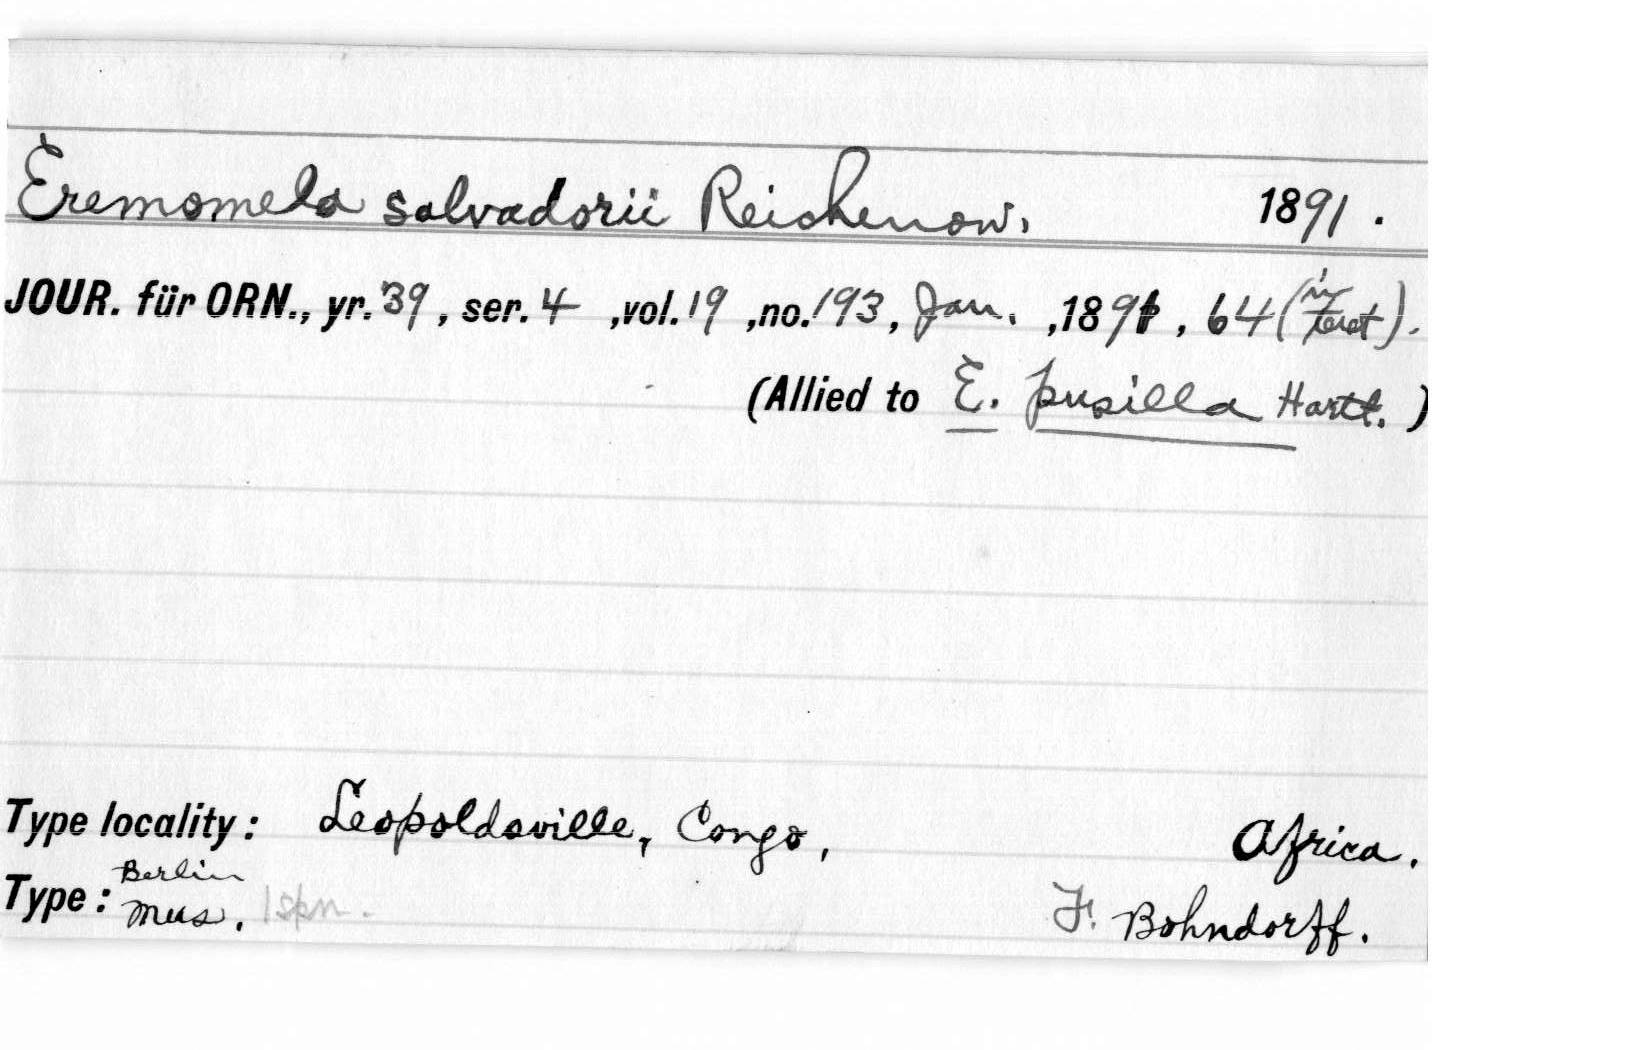 Eremomela salvadorii Reichenow. 1891.
JOUR. für ORN., yr. 39, ser. 4 ,vol. 19 ,no. 193, Jan. ,1891, 64 (in text).
(Allied to E. pusilla Hartl. )
Type locality: Leopoldsville, Congo, Africa.
Type: Berlin Mus. 1 spn. F. Bohndorff.